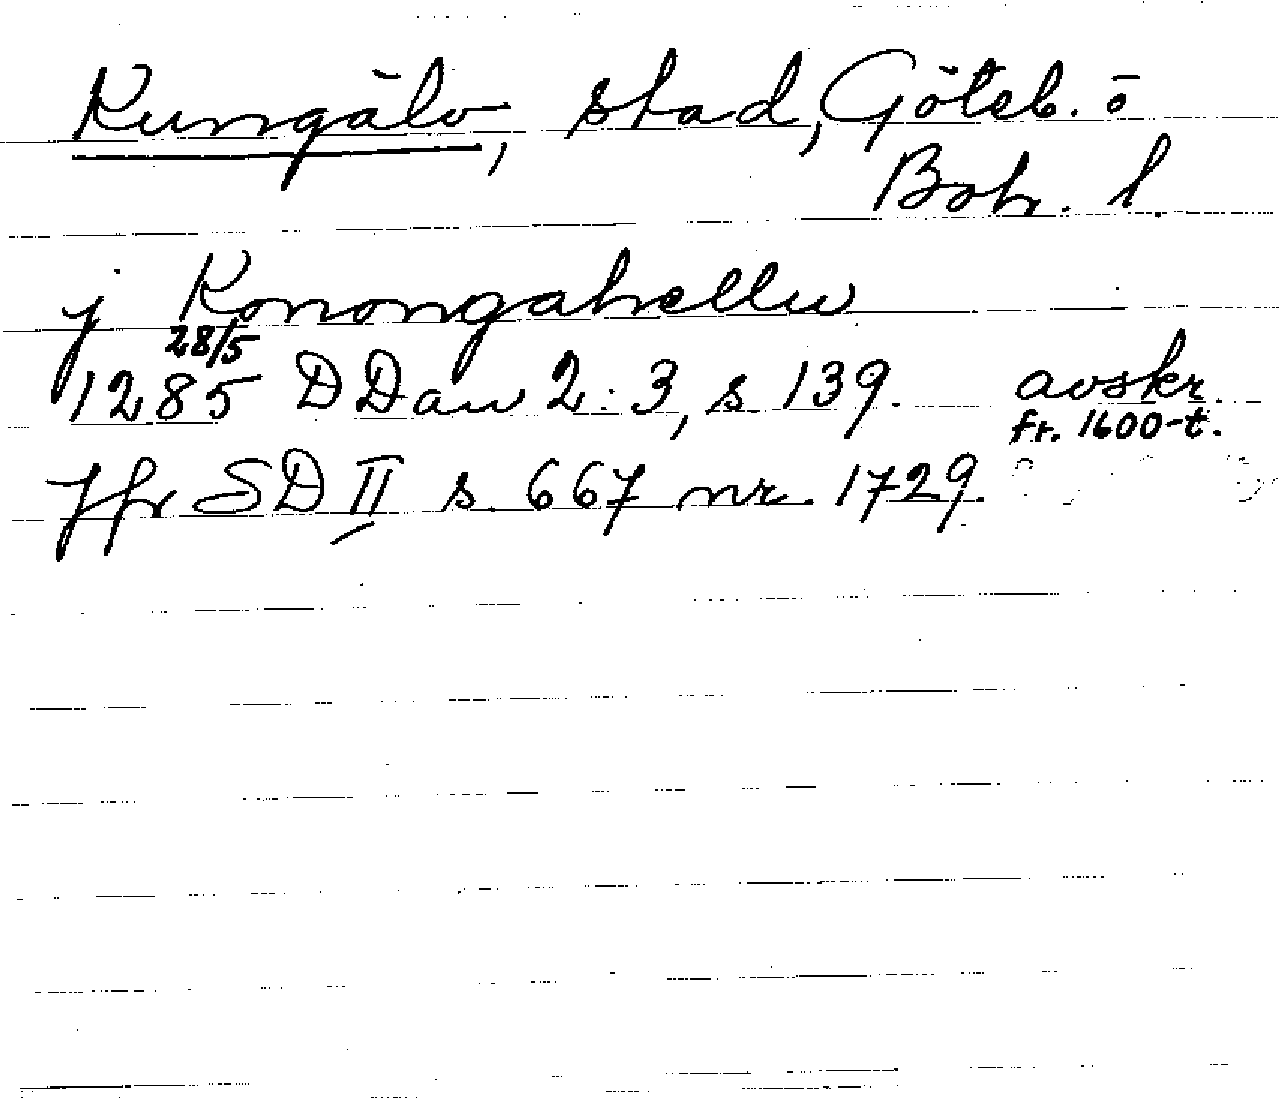 Kungälv, stad, Göteb. o
Boh. l.
j Konongahellu
28/5
1285 DDan 2:3, s. 139. avskr.
fr. 1600-t.
Jfr SD II s. 667 nr. 1729.